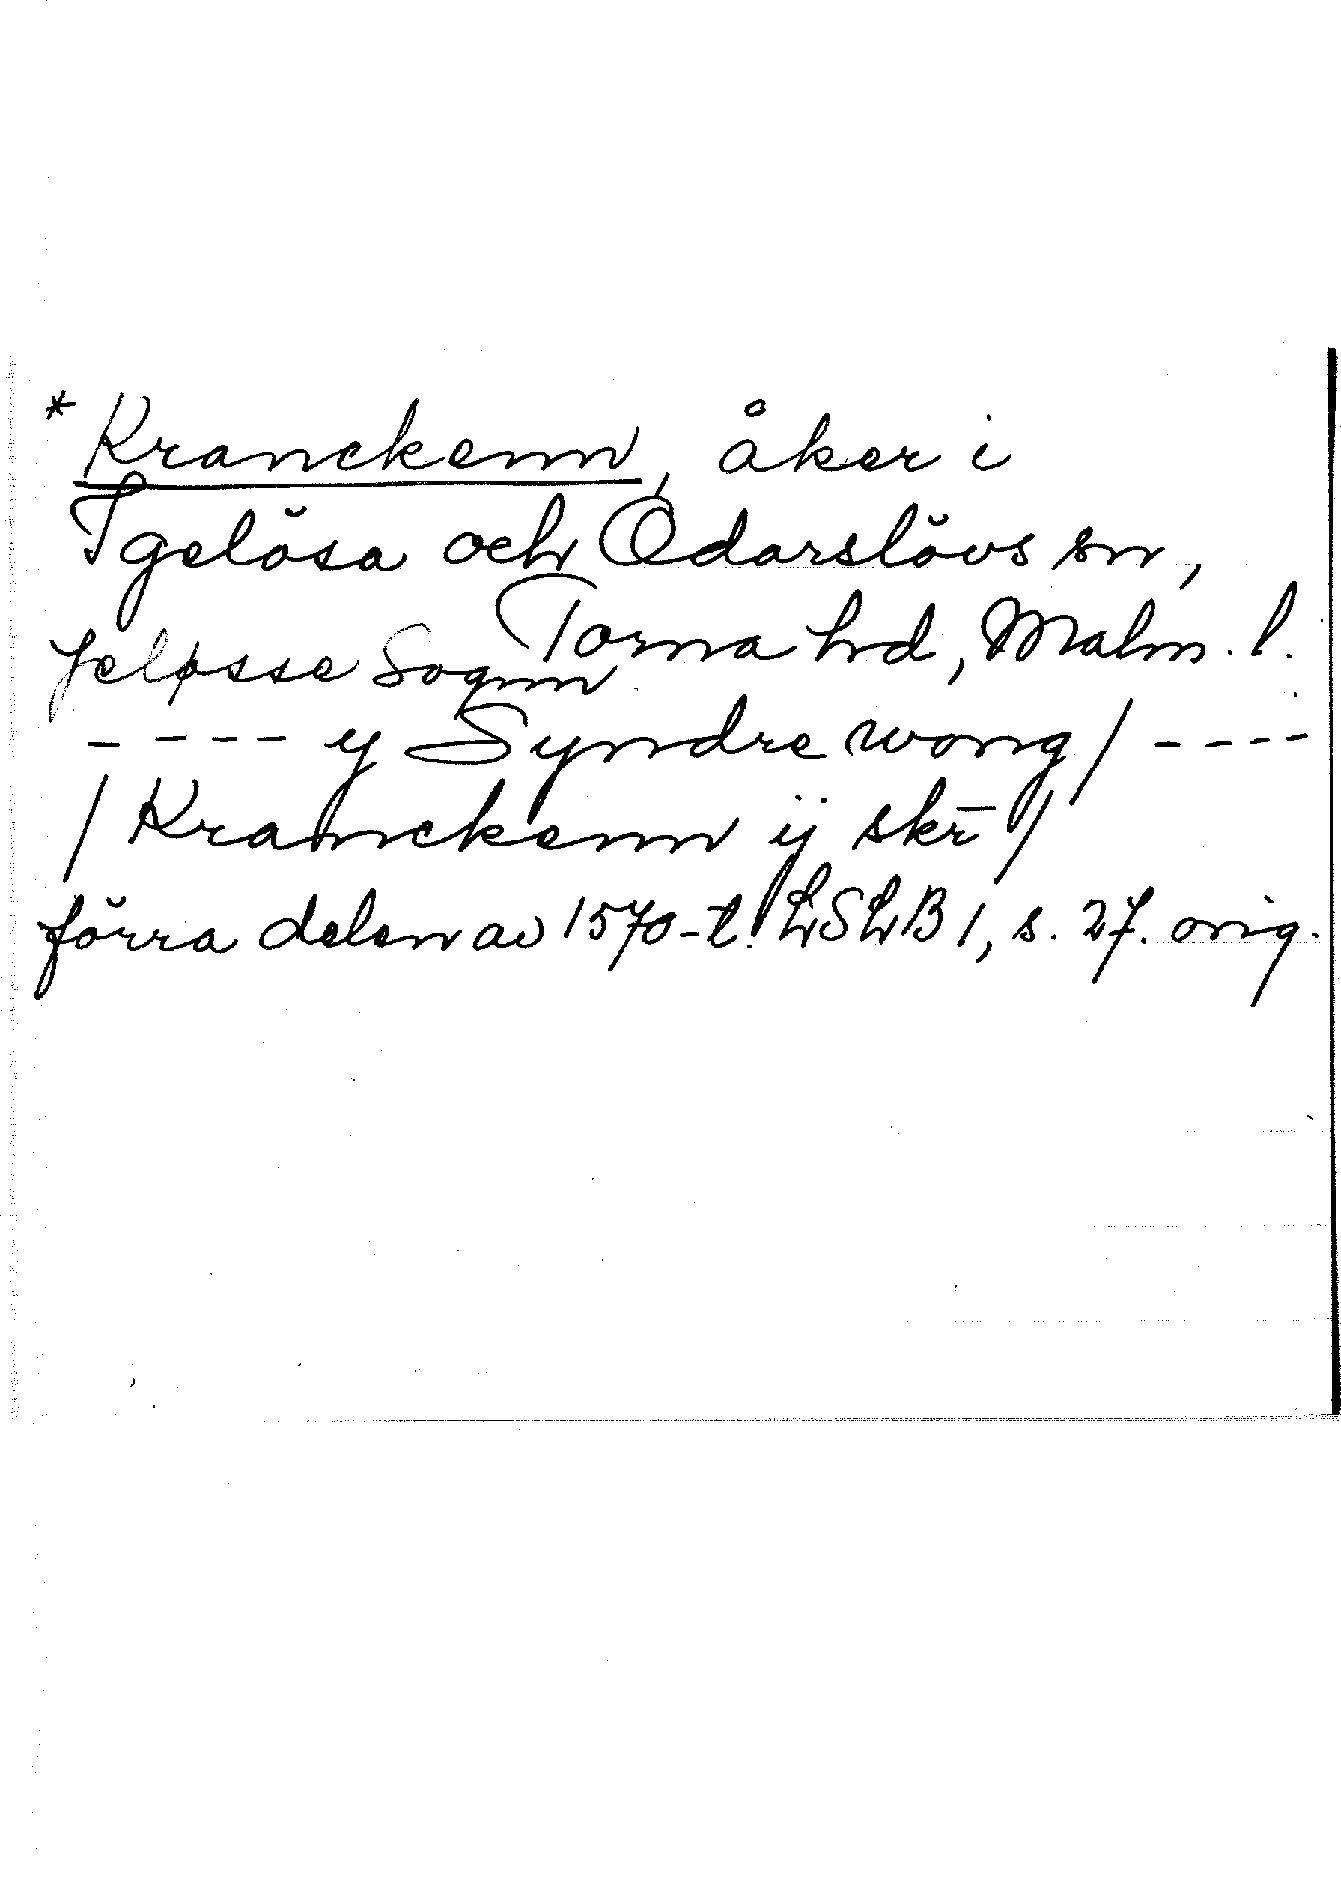 *Kranckenn, åker i
Igelösa och Odarslövs sn,
Torna hd, Malm. l.
Jeløsse Sognn
---- y Syndre wong / ----
/ Kranckenn ij skr̄ /
förra delen av 1570-t. LSLB 1, s. 27. orig.